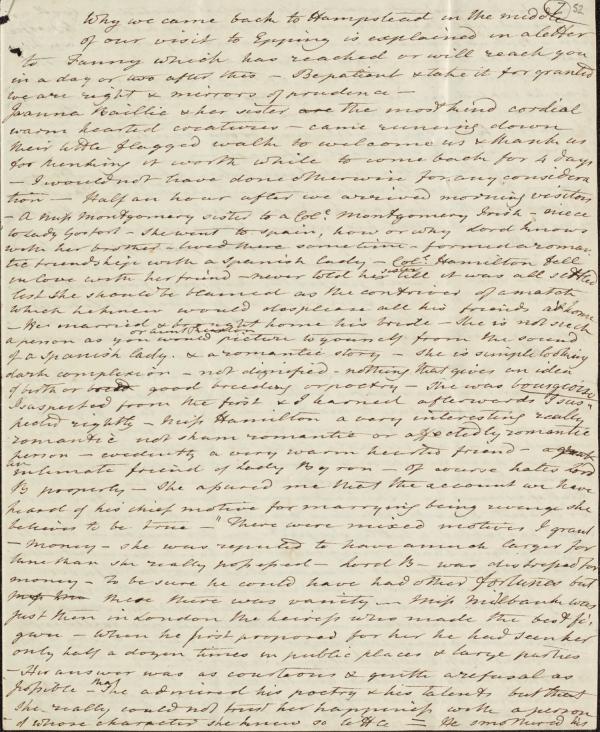 7) 52
Why we came back to Hampstead in the middle
of our visit to Epping is explained in a letter
to Fanny which has reached or will reach you
in a day or two after this – Be patient & take it for granted
we are right & mirrors of prudence –
Joanna Baillie & her sister are the most kind cordial
warm hearted creatures – came running down
their little flagged walk to welcome us & thank us
for thinking it worth while to come back for 4 days
– I would not have done otherwise for any considera
tion – Half an hour after we arrived morning visitors
– A Miss Montgomery sister to a Col. Montgomery Irish – niece
to Lady Gosford – she went to Spain, how or why Lord knows
with her brother – lived there some time – formed a roman
tic friendship with a Spanish lady – Col. Hamilton fell
in love with her friend – never told his sister till it was all settled
lest she should be blamed as the contriver of a match
which he knew would displease all his friends at home
– He married & brought home his bride – She is not such
a person as you would picture to yourself from the sound
of a Spanish lady & a romantic story – she is simple looking
dark complexion – not dignified – nothing that gives an idea
of birth or good breeding or poetry – She was bourgeoise
I suspected from the first & I learned afterwards I sus
pected rightly – Miss Hamilton a very interesting really
romantic not sham romantic or affectedly romantic
person – evidently a very warm hearted friend –
intimate friend of Lady Byron – of course hates Lord
B properly – She assured me that the account we have
heard of his chief motive for marrying being revenge she
believes to be true – "There were mixed motives I grant
– money – she was reputed to have a much larger for
tune than she really possessed – Lord B – was distressed for
money – to be sure he could have had other fortunes but
then there was vanity – Miss Milbank was
just then in London the heiress who made the best fi
gure – when he first proposed for her he had seen her
only half a dozen times in public places & large parties
– Her answer was as courteous & gentle a refusal as
possible that she admired his poetry & his talents but that
she really could not trust her happiness with a person
of whose character she knew so little = He smothered his